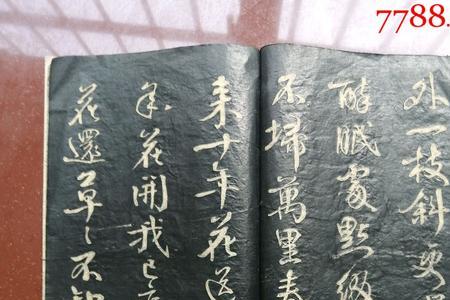 7788.
外一枝斜更
酔眠處點綴
不掃萬里春
來十年花送
年花開我已
花還草〻不知